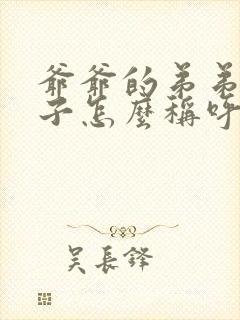 爺爺的弟弟
子怎麼稱呼
吳長鋒